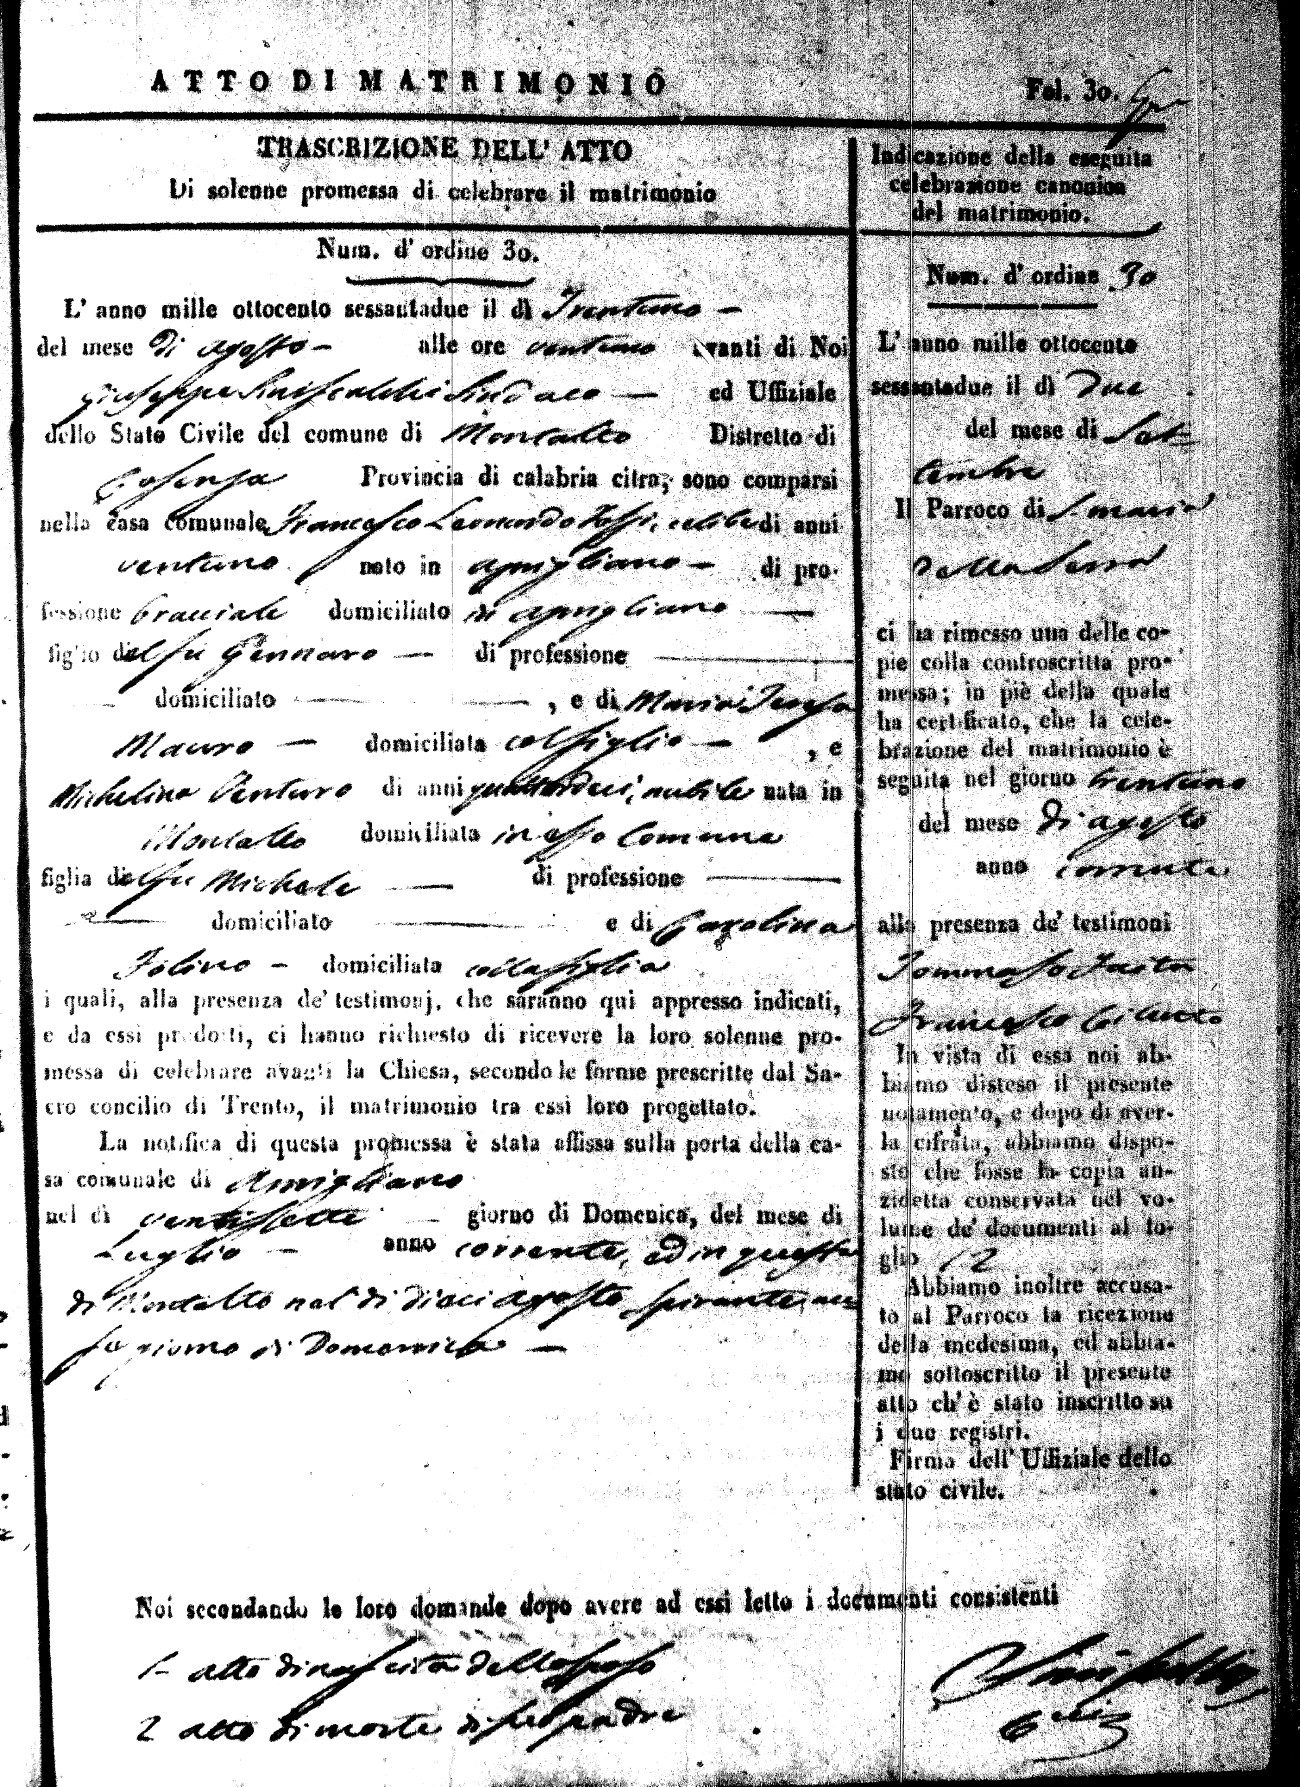 ATTO DI MATRIMONIO
Fol. 30.
TRASCRIZIONE DELL' ATTO
Di solenne promessa di celebrare il matrimonio
Num. d' ordine 30.
L' anno mille ottocento sessantadue il dì Trentuno
del mese di agosto alle ore ventuno avanti di Noi
Giuseppe Sindaco ed Uffiziale
dello Stato Civile del comune di Montalto Distretto di
Cosenza Provincia di calabria citra, sono comparsi
nella casa comunale Francesco Leonardo celibe di anni
ventuno nato in Aprigliano di pro-
fessione bracciale domiciliato in Aprigliano
figlio del fu Gennaro di professione
domiciliato , e di Maria Teresa
Mauro domiciliata col figlio , e
Michelina Venturo di anni quattordici, nubile nata in
Montalto domiciliata in esso Comune
figlia del fu Michele di professione
domiciliato e di Carolina
domiciliata colla figlia
i quali, alla presenza de' testimonj, che saranno qui appresso indicati,
e da essi prodotti, ci hanno richiesto di ricevere la loro solenne pro-
messa di celebrare avanti la Chiesa, secondo le forme prescritte dal Sa-
cro concilio di Trento, il matrimonio tra essi loro progettato.
La notifica di questa promessa è stata affissa sulla porta della ca-
sa comunale di Aprigliano
nel dì ventisette giorno di Domenica, del mese di
Luglio anno corrente, ed in questa
di Montalto nel dì dieci agosto spirante,
giorno di Domenica
Indicazione della eseguita
celebrazione canonica
del matrimonio.
Num. d' ordine 30
L' anno mille ottocento
sessantadue il dì due
del mese di Set
tembre
Il Parroco di S. Maria
della Serra
ci ha rimesso una delle co-
pie colla controscritta pro-
messa; in piè della quale
ha certificato, che la cele-
brazione del matrimonio è
seguita nel giorno trentuno
del mese di agosto
anno corrente
alla presenza de' testimoni
Tommaso
Francesco
In vista di essa noi ab-
biamo disteso il presente
notamento, e dopo di aver-
la cifrata, abbiamo dispo-
sto che fosse la copia an-
zidetta conservata nel vo-
lume de' documenti al fo-
glio 12
Abbiamo inoltre accusa-
to al Parroco la ricezione
della medesima, ed abbia-
mo sottoscritto il presente
atto ch' è stato inscritto su
i due registri.
Firma dell' Uffiziale dello
stato civile.
Noi secondando le loro domande dopo avere ad essi letto i documenti consistenti
1- atto di nascita dello sposo
2 atto di morte di suo padre